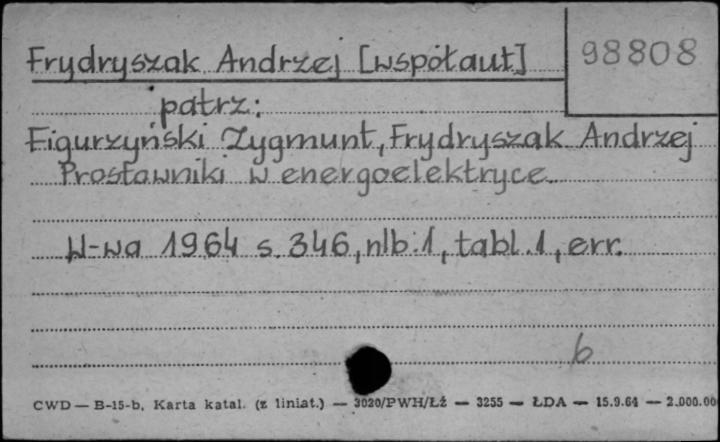 Frydryszak Andrzej [współaut]
98808
patrz:
Figurzyński Zygmunt, Frydryszak Andrzej
Prostowniki w energoelektryce
W-wa 1964 s. 346, nlb. 1, tabl. 1, err.
b
CWD — B-15-b, Karta katal. (z liniat.) — 3020/PWH/Łź — 3255 — ŁDA — 15.9.64 — 2.000.00